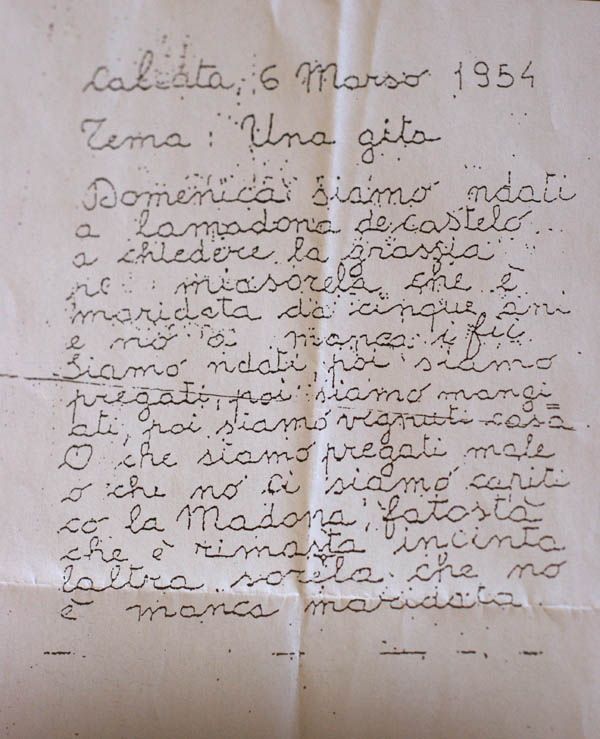 Calcata, 6 Marso 1954
Tema: Una gita
Domenica siamo ndati
a lamadona de castelo
a chiedere la grassia
pe miasorela che è
maridata da cinque ani
e nó à manca i fii
Siamo ndati, poi siamo
pregati, poi siamo mangi
ati, poi siamo vignuti casa
O che siamo pregati male
o che no ci siamo capiti
co la Madona, fatostà
che è rimasta incinta
laltra sorela che no
è manca maridata.